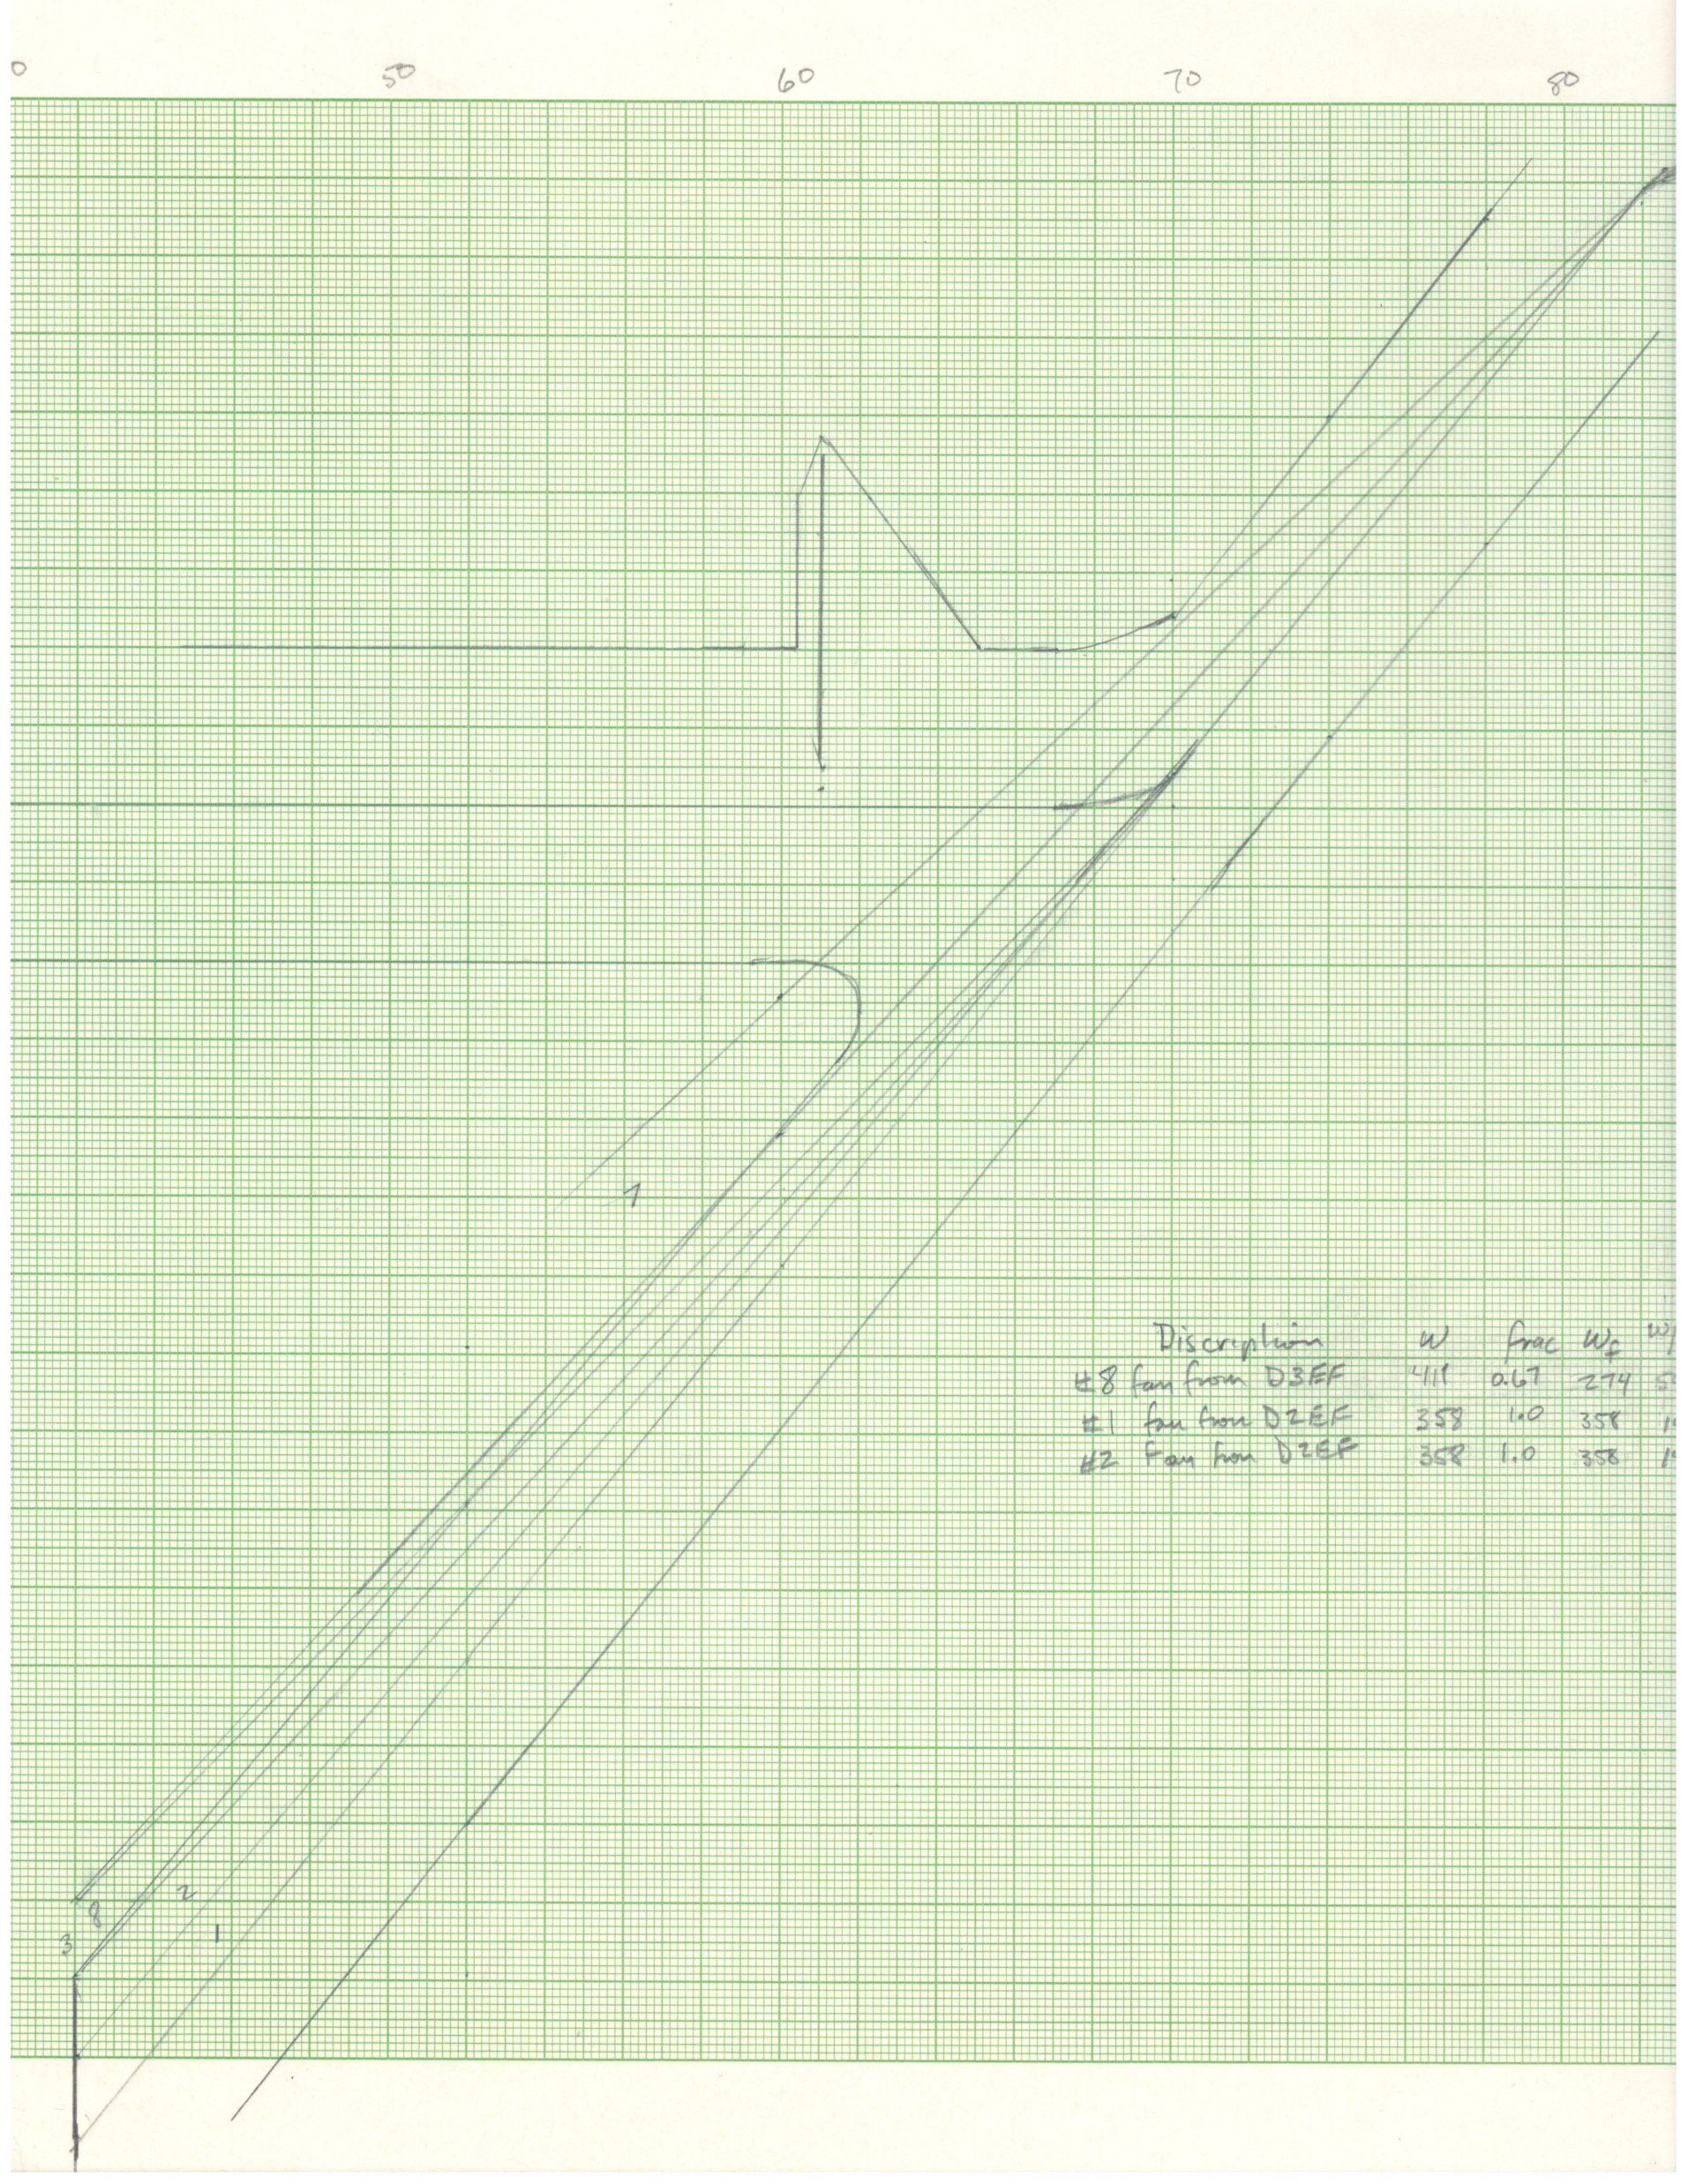 0 50 60 70 80
1
Discreption W frac Wf W/
#8 fan from D3EF 411 0.67 274 5
#1 fan from D2EF 358 1.0 358 1
#2 Fan from D2EF 358 1.0 358 1
2
8
1
3